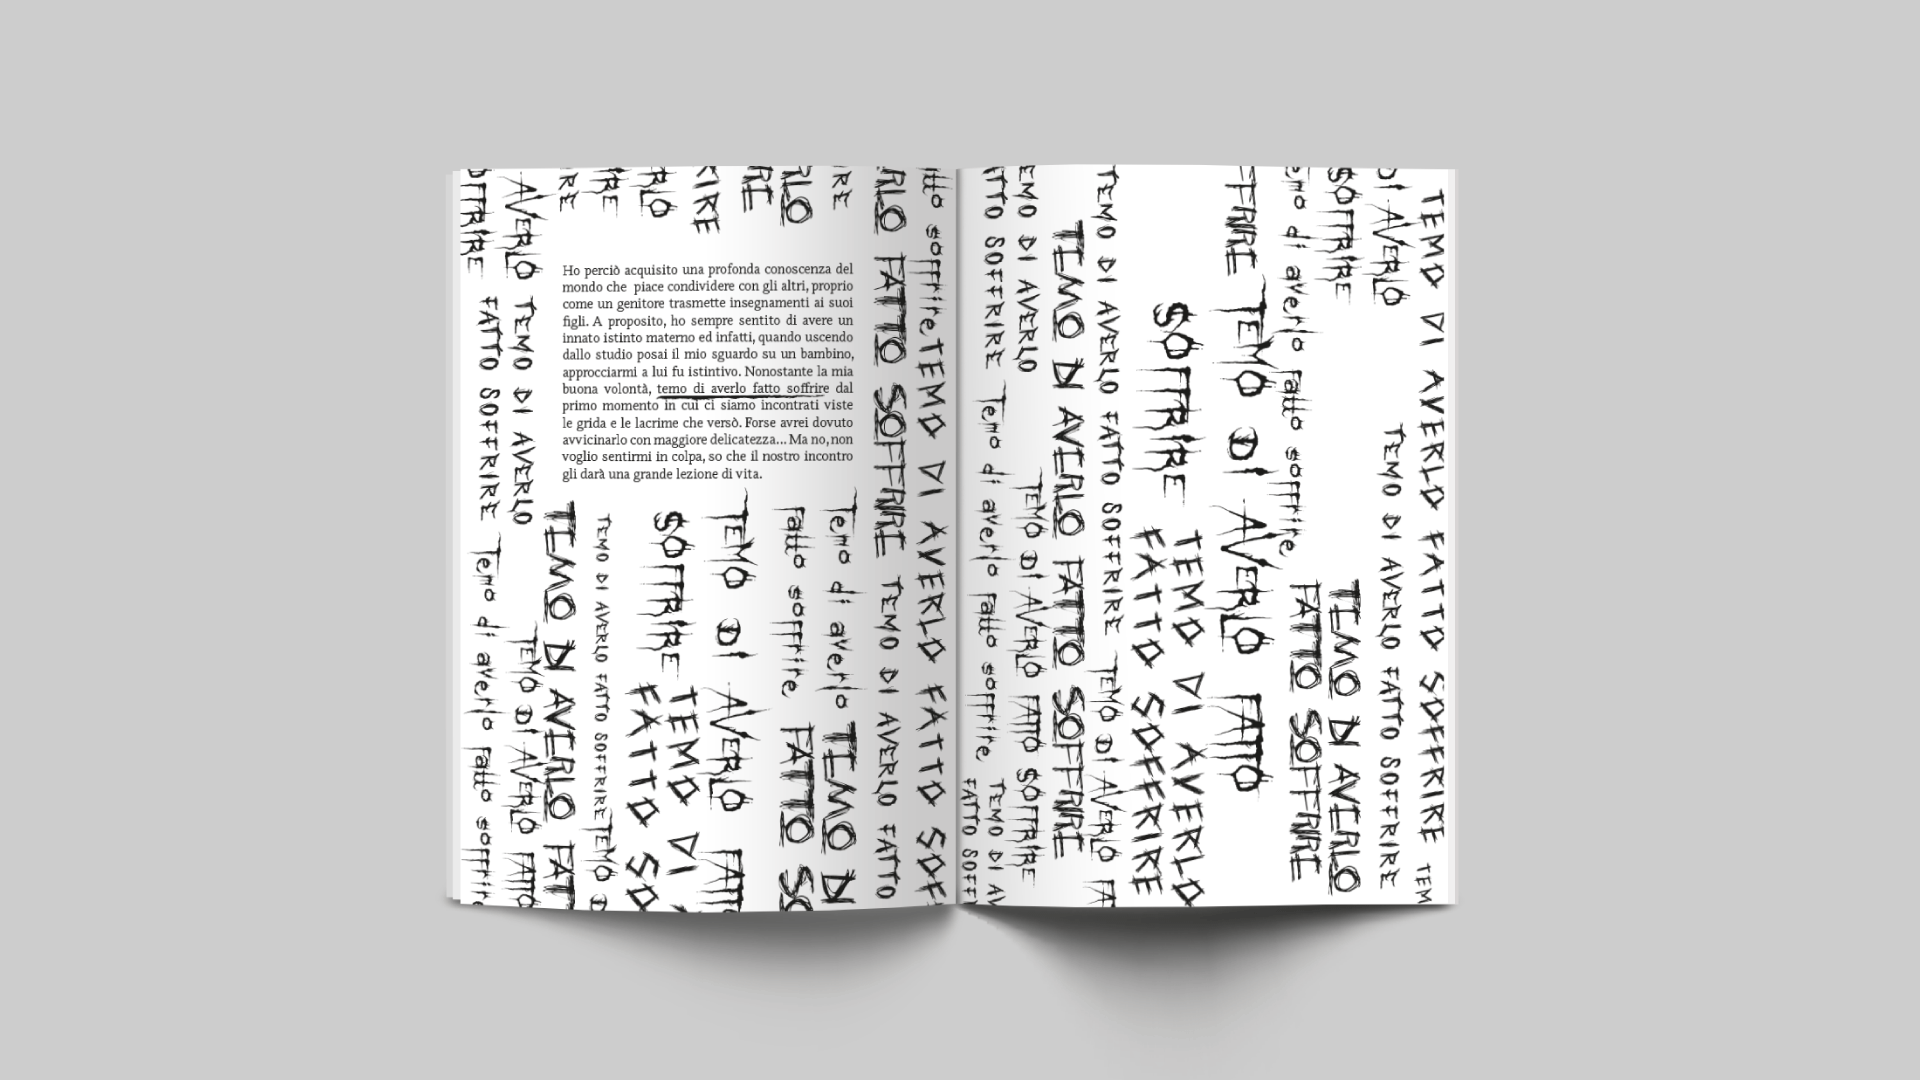 Ho perciò acquisito una profonda conoscenza del
mondo che piace condividere con gli altri, proprio
come un genitore trasmette insegnamenti ai suoi
figli. A proposito, ho sempre sentito di avere un
innato istinto materno ed infatti, quando uscendo
dallo studio posai il mio sguardo su un bambino,
approcciarmi a lui fu istintivo. Nonostante la mia
buona volontà, temo di averlo fatto soffrire dal
primo momento in cui ci siamo incontrati viste
le grida e le lacrime che versò. Forse avrei dovuto
avvicinarlo con maggiore delicatezza... Ma no, non
voglio sentirmi in colpa, so che il nostro incontro
gli darà una grande lezione di vita.
SOFFRIRE
AVERLO
TEMO DI AVERLO
FATTO SOFFRIRE
Temo di averlo fatto soffrire
TEMO DI AVERLO FATTO
TEMO DI AVERLO FAT
TEMO DI AVERLO FATTO SOFFRIRE
TEMO D
TEMO DI
FATTO SO
TEMO DI AVERLO FATTO
SOFFRIRE
Temo di averlo
fatto soffrire
TEMO DI
FATTO SO
RLO FATTO SOFFRIRE
TEMO DI AVERLO FATTO
fatto soffrire
TEMO DI AVERLO FATTO SOF
EMO DI AVERLO
ATTO SOFFRIRE
Temo di averlo fatto soffrire
TEMO DI AV
FATTO SOFF
TEMO DI AVERLO FATTO SOFFRIRE
TEMO DI AVERLO FATTO SOFFRIRE
TEMO DI AVERLO FATTO SOFFRIRE
TEMO DI AVERLO FA
TEMO DI AVERLO
FATTO SOFFRIRE
FFRIRE
TEMO DI AVERLO FATTO
SOFFRIRE
emo di averlo fatto soffrire
TEMO DI AVERLO
FATTO SOFFRIRE
DI AVERLO
SOFFRIRE
TEMO DI AVERLO FATTO SOFFRIRE
TEMO DI AVERLO FATTO SOFFRIRE
TEM